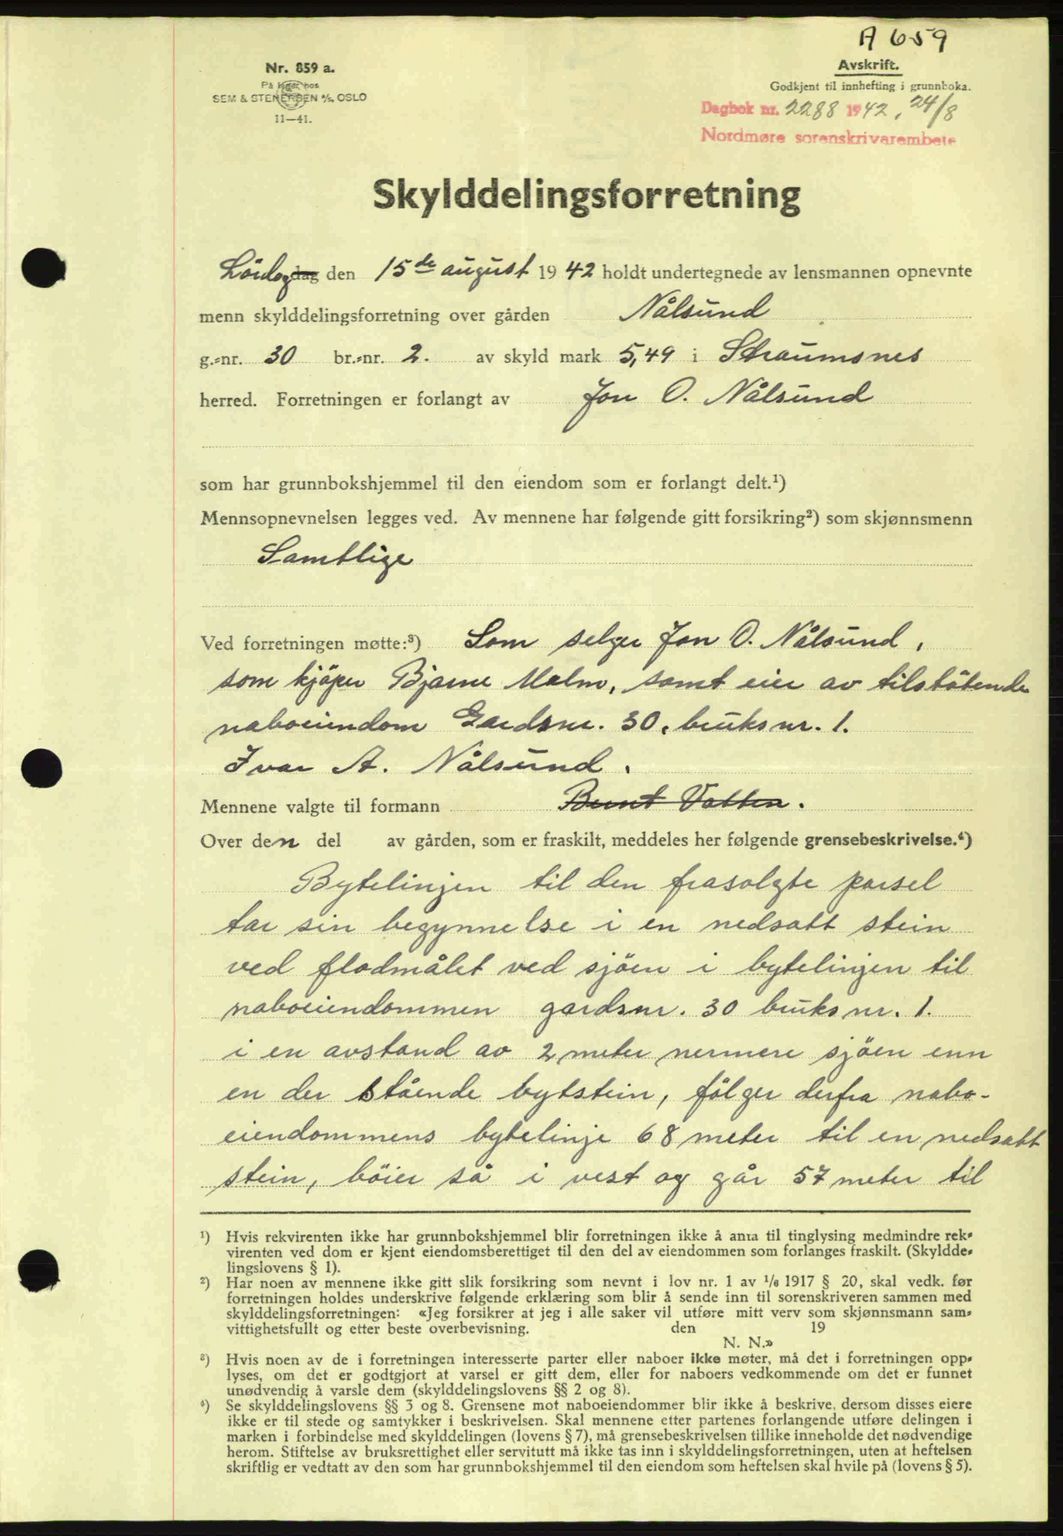 A 659
Nr. 859 a.
På lager hos
SEM & STENERSEN A/S, OSLO
11—41.
Avskrift.
Godkjent til innhefting i grunnboka.
Dagbok nr. 2288 1942, 24/8
Nordmøre sorenskrivarembete
Skylddelingsforretning
Lördag den 15de august 1942 holdt undertegnede av lensmannen opnevnte
menn skylddelingsforretning over gården Nålsund
g.-nr. 30 br.-nr. 2. av skyld mark 5,49 i Straumsnes
herred. Forretningen er forlangt av Jon O. Nålsund
som har grunnbokshjemmel til den eiendom som er forlangt delt.¹)
Mennsopnevnelsen legges ved. Av mennene har følgende gitt forsikring²) som skjønnsmenn
Samtlige
Ved forretningen møtte:³) Som selger Jon O. Nålsund,
som kjöper Bjarne Malm, samt eier av tilstötende
naboeiendom Gardsnr. 30, bruksnr. 1.
Ivar A. Nålsund.
Mennene valgte til formann Bernt Vatten.
Over den del av gården, som er fraskilt, meddeles her følgende grensebeskrivelse.⁴)
Bytelinjen til den frasolgte parsel
tar sin begynnelse i en nedsatt stein
ved flodmålet ved sjöen i bytelinjen til
naboeiendommen gardsnr. 30 bruksnr. 1.
i en avstand av 2 meter nermere sjöen enn
en der stående bytstein, fölger derfra nabo-
eiendommens bytelinje 68 meter til en nedsatt
stein, böier så i vest og går 57 meter til
¹) Hvis rekvirenten ikke har grunnbokshjemmel blir forretningen ikke å anta til tinglysing medmindre rek-
virenten ved dom er kjent eiendomsberettiget til den del av eiendommen som forlanges fraskilt. (Skyldde-
lingslovens § 1).
²) Har noen av mennene ikke gitt slik forsikring som nevnt i lov nr. 1 av 1/6 1917 § 20, skal vedk. før
forretningen holdes underskrive følgende erklæring som blir å sende inn til sorenskriveren sammen med
skylddelingsforretningen: «Jeg forsikrer at jeg i alle saker vil utføre mitt verv som skjønnsmann sam-
vittighetsfullt og etter beste overbevisning. den 19
N. N.»
³) Hvis noen av de i forretningen interesserte parter eller naboer ikke møter, må det i forretningen opp-
lyses, om det er godtgjort at varsel er gitt dem, eller for naboers vedkommende om det er funnet
unødvendig å varsle dem (skylddelingslovens §§ 2 og 8).
⁴) Se skylddelingslovens §§ 3 og 8. Grensene mot naboeiendommer blir ikke å beskrive, dersom disses eiere
ikke er til stede og samtykker i beskrivelsen. Skal mennene etter partenes forlangende utføre delingen i
marken i forbindelse med skylddelingen (lovens § 7), må grensebeskrivelsen tillike inneholde det nødvendige
herom. Stiftelse av bruksrettighet eller servitutt må ikke tas inn i skylddelingsforretningen, uten at heftelsen
skriftlig er vedtatt av den som har grunnbokshjemmel til den eiendom som heftelsen skal hvile på (lovens § 5).